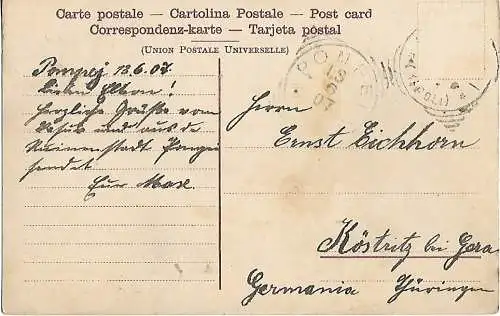 Carte postale — Cartolina Postale — Post card
Correspondenz-karte — Tarjeta postal
(Union Postale Universelle)
Pompej 13.6.07.
Lieben Eltern!
Herzliche Grüße vom
Vesuv und aus der
Ruinenstadt Pompei
sendet
Euer Max
POMPEI
13
6
07
(NAPOLI)
Herrn
Ernst Eichhorn
Köstritz bei Gera
Germania Thüringen